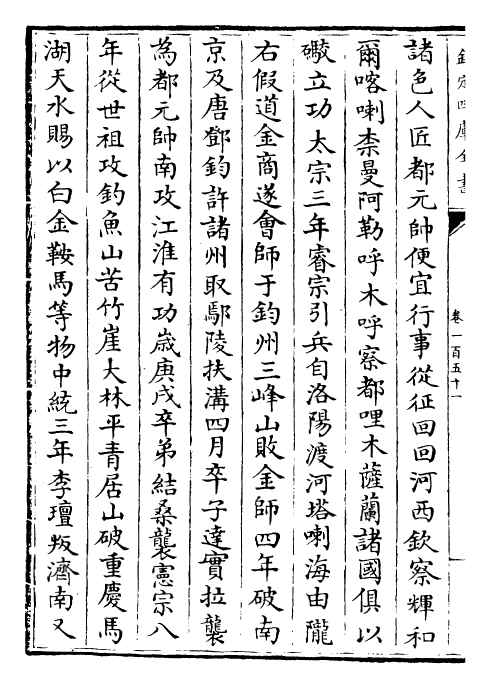 諸色人匠都元帥便宜行事從征回回河西欽察輝和
爾喀喇柰曼阿勒呼木呼察都哩木薩蘭諸國俱以
礮立功太宗三年睿宗引兵自洛陽渡河塔喇海由隴
右假道金商遂會師于鈞州三峰山敗金師四年破南
京及唐鄧鈞許諸州取鄢陵扶溝四月卒子達實拉襲
為都元帥南攻江淮有功歲庚戌卒弟結桑襲憲宗八
年從世祖攻釣魚山苦竹崖大林平青居山破重慶馬
湖天水賜以白金鞍馬等物中統三年李璮叛濟南又
欽定四庫全書
卷一百五十一